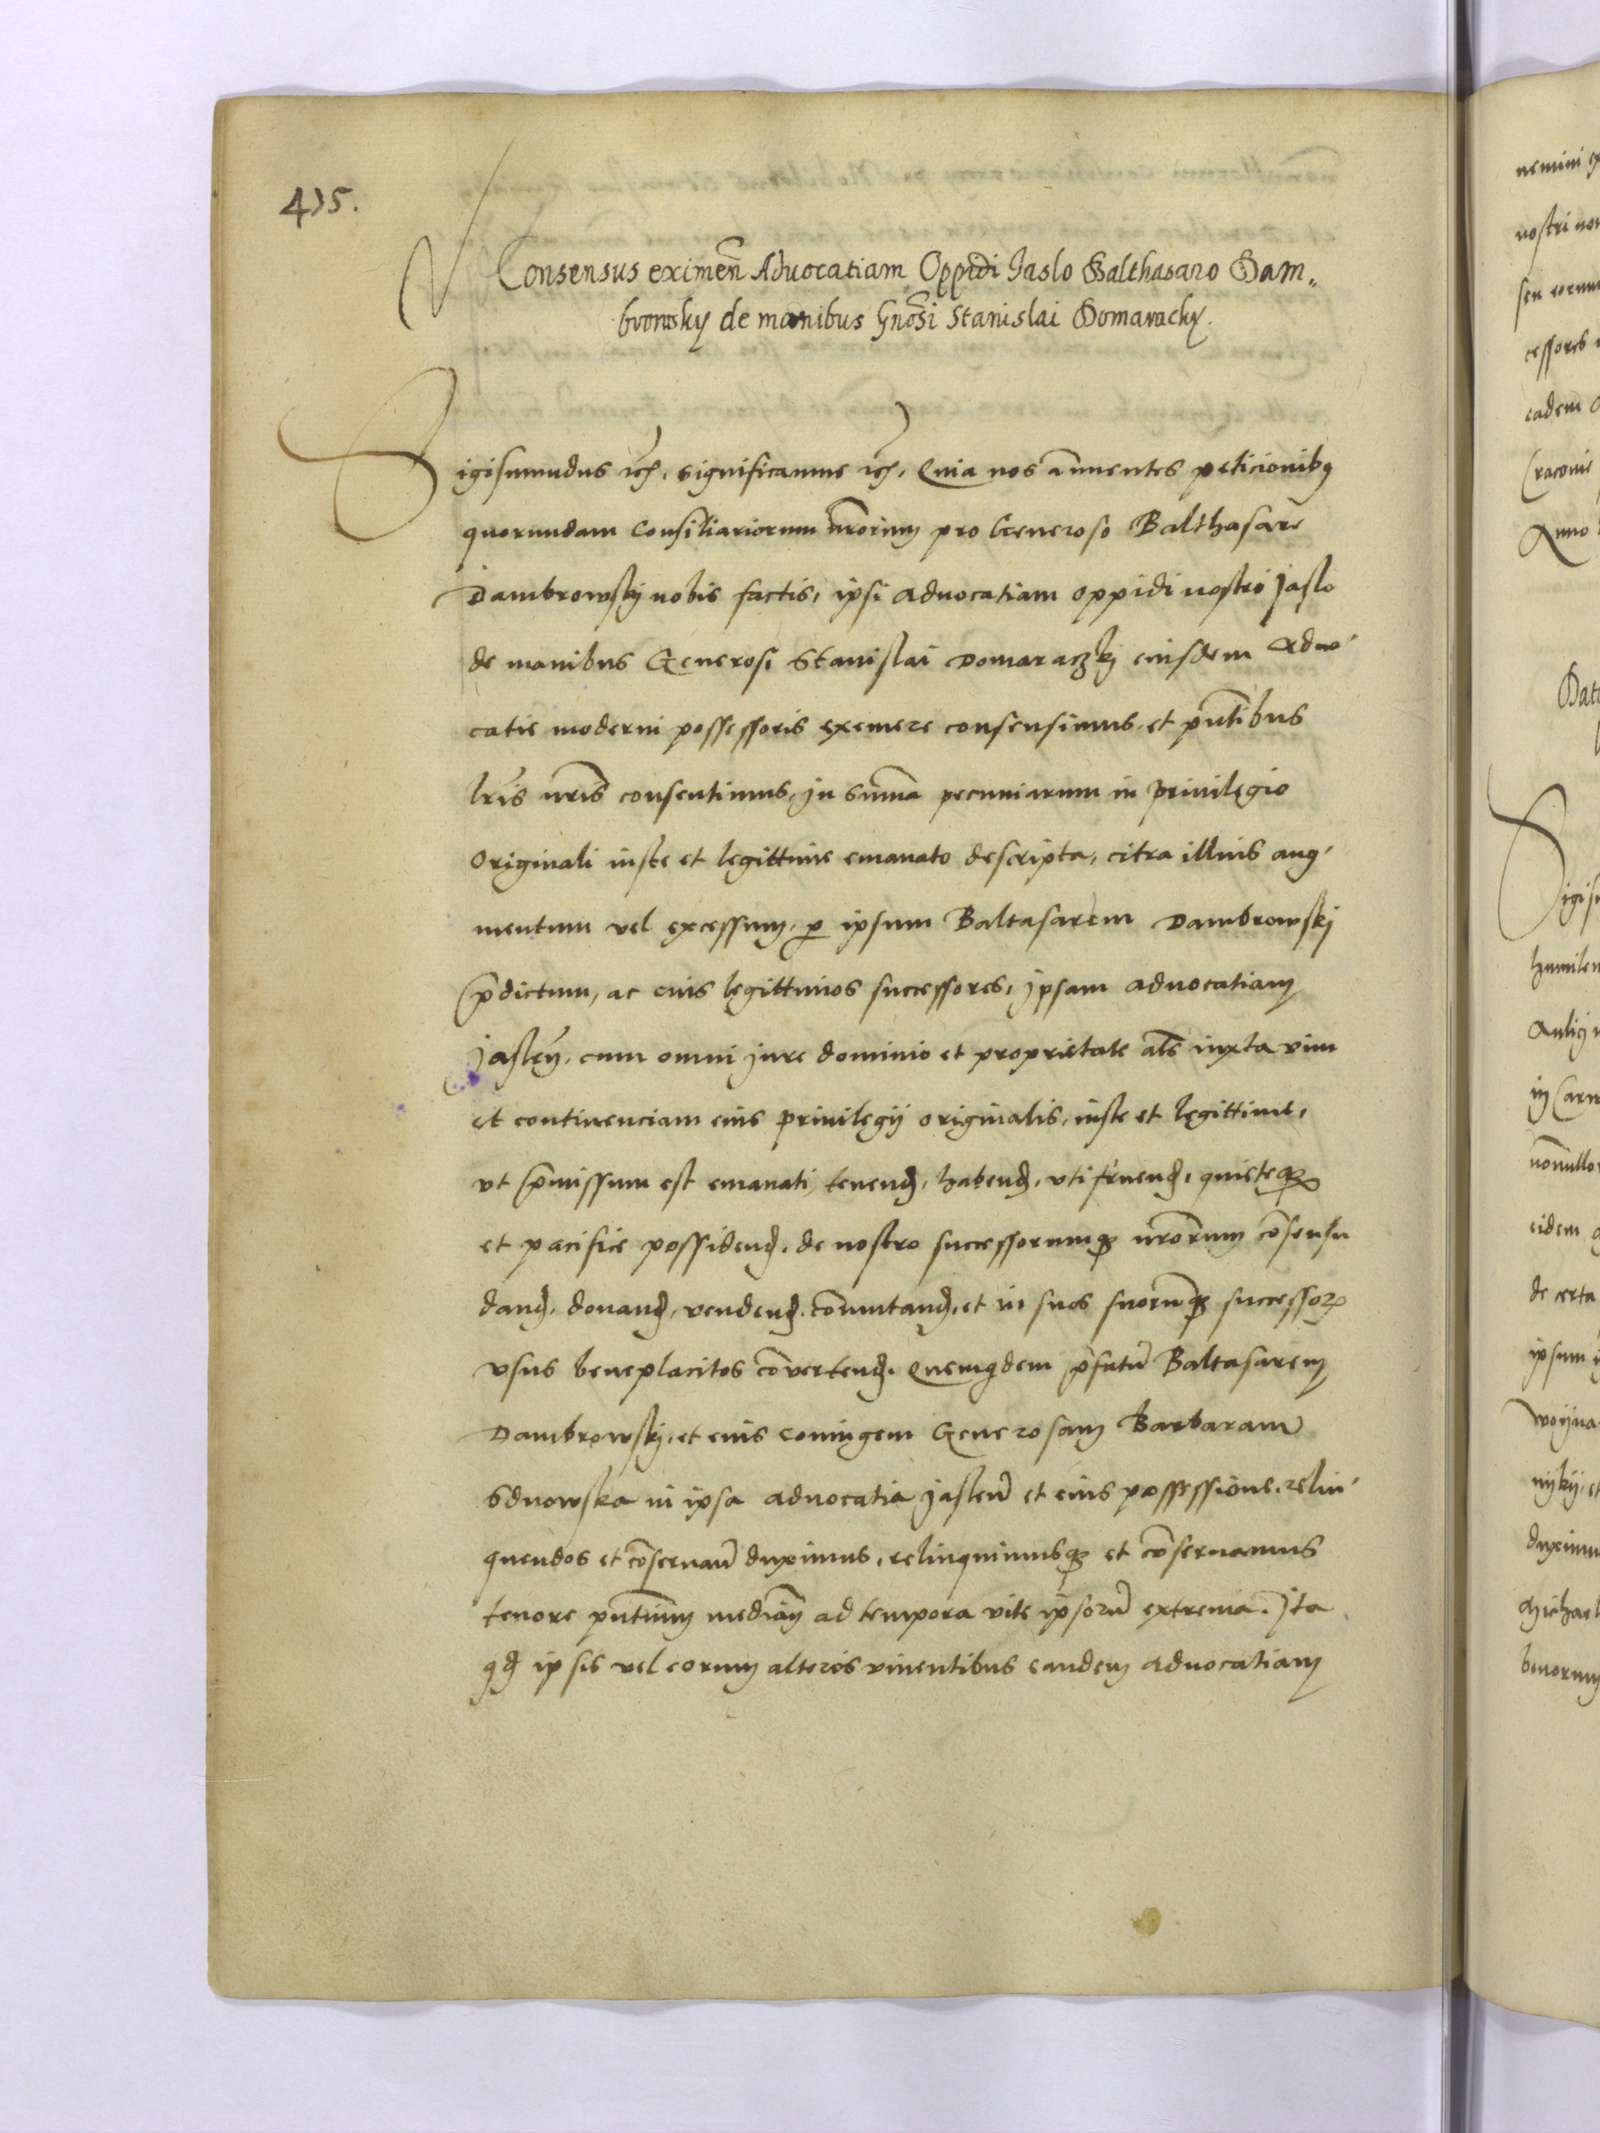 435.
Consensus eximeñ Aduocatiam Oppidi Jaslo Balthasaro Dam„
browsky de manibus Gnõsi Stanislai Domaracky.
Sigismundus ꝛcͭ. significamus ꝛcͭ. Quia nos annuentes peticionibꝯ
quorundam Consiliariorum nr̃orum pro Generoso Balthasare
Dambrowskj nobis factis, ipsi aduocatiam oppidi nostri Jaslo
de manibus Generosi Stanislai Domaraczkj eiusdem aduo-
catie moderni possessoris exemere consensimus, et pñtibus
lr̃is nr̃is consentimus, in Sum̃a pecuniarum in priuilegio
Originali iuste et legittime emanato descripta, citra illius aug-
mentum vel excessum, ꝑ ipsum Baltasarem Dambrowskj
p̃dictum, ac eius legittimos successores, ipsam aduocatiam
Jasleñ. cum omni jure dominio et proprietate al̃s iuxta vim
et continenciam eius priuilegij originalis, iuste et legittime,
vt p̃missum est emanati, tenenđ, habenđ, vtifruenđ, quieteqꝫ
et pacifice possidenđ, de nostro successorumqꝫ nr̃orum cõsensu
danđ, donanđ, vendenđ. com̃utanđ, et in suos suorũqꝫ successoꝝ
vsus beneplacitos cõuertenđ. Quemqdem p̃fatũ Baltasarem
Dambrowskj, et eius coniugem Generosam Barbaram
Sdnowska in ipsa aduocatia Jasleñ et eius possessione, relin-
quendos et cõseruanđ duximus, relinquimusqꝫ et cõseruamus
tenore pñtium mediañ ad tempora vite ipsorũ extrema. Ita
qđ ipsis vel eorum alteros viuentibus eandem aduocatiam
nemini
nostri
seu eorum
cessores
eadem
Cracouie
Anno
humilem
in
eidem
de certa
ipsum
duximus